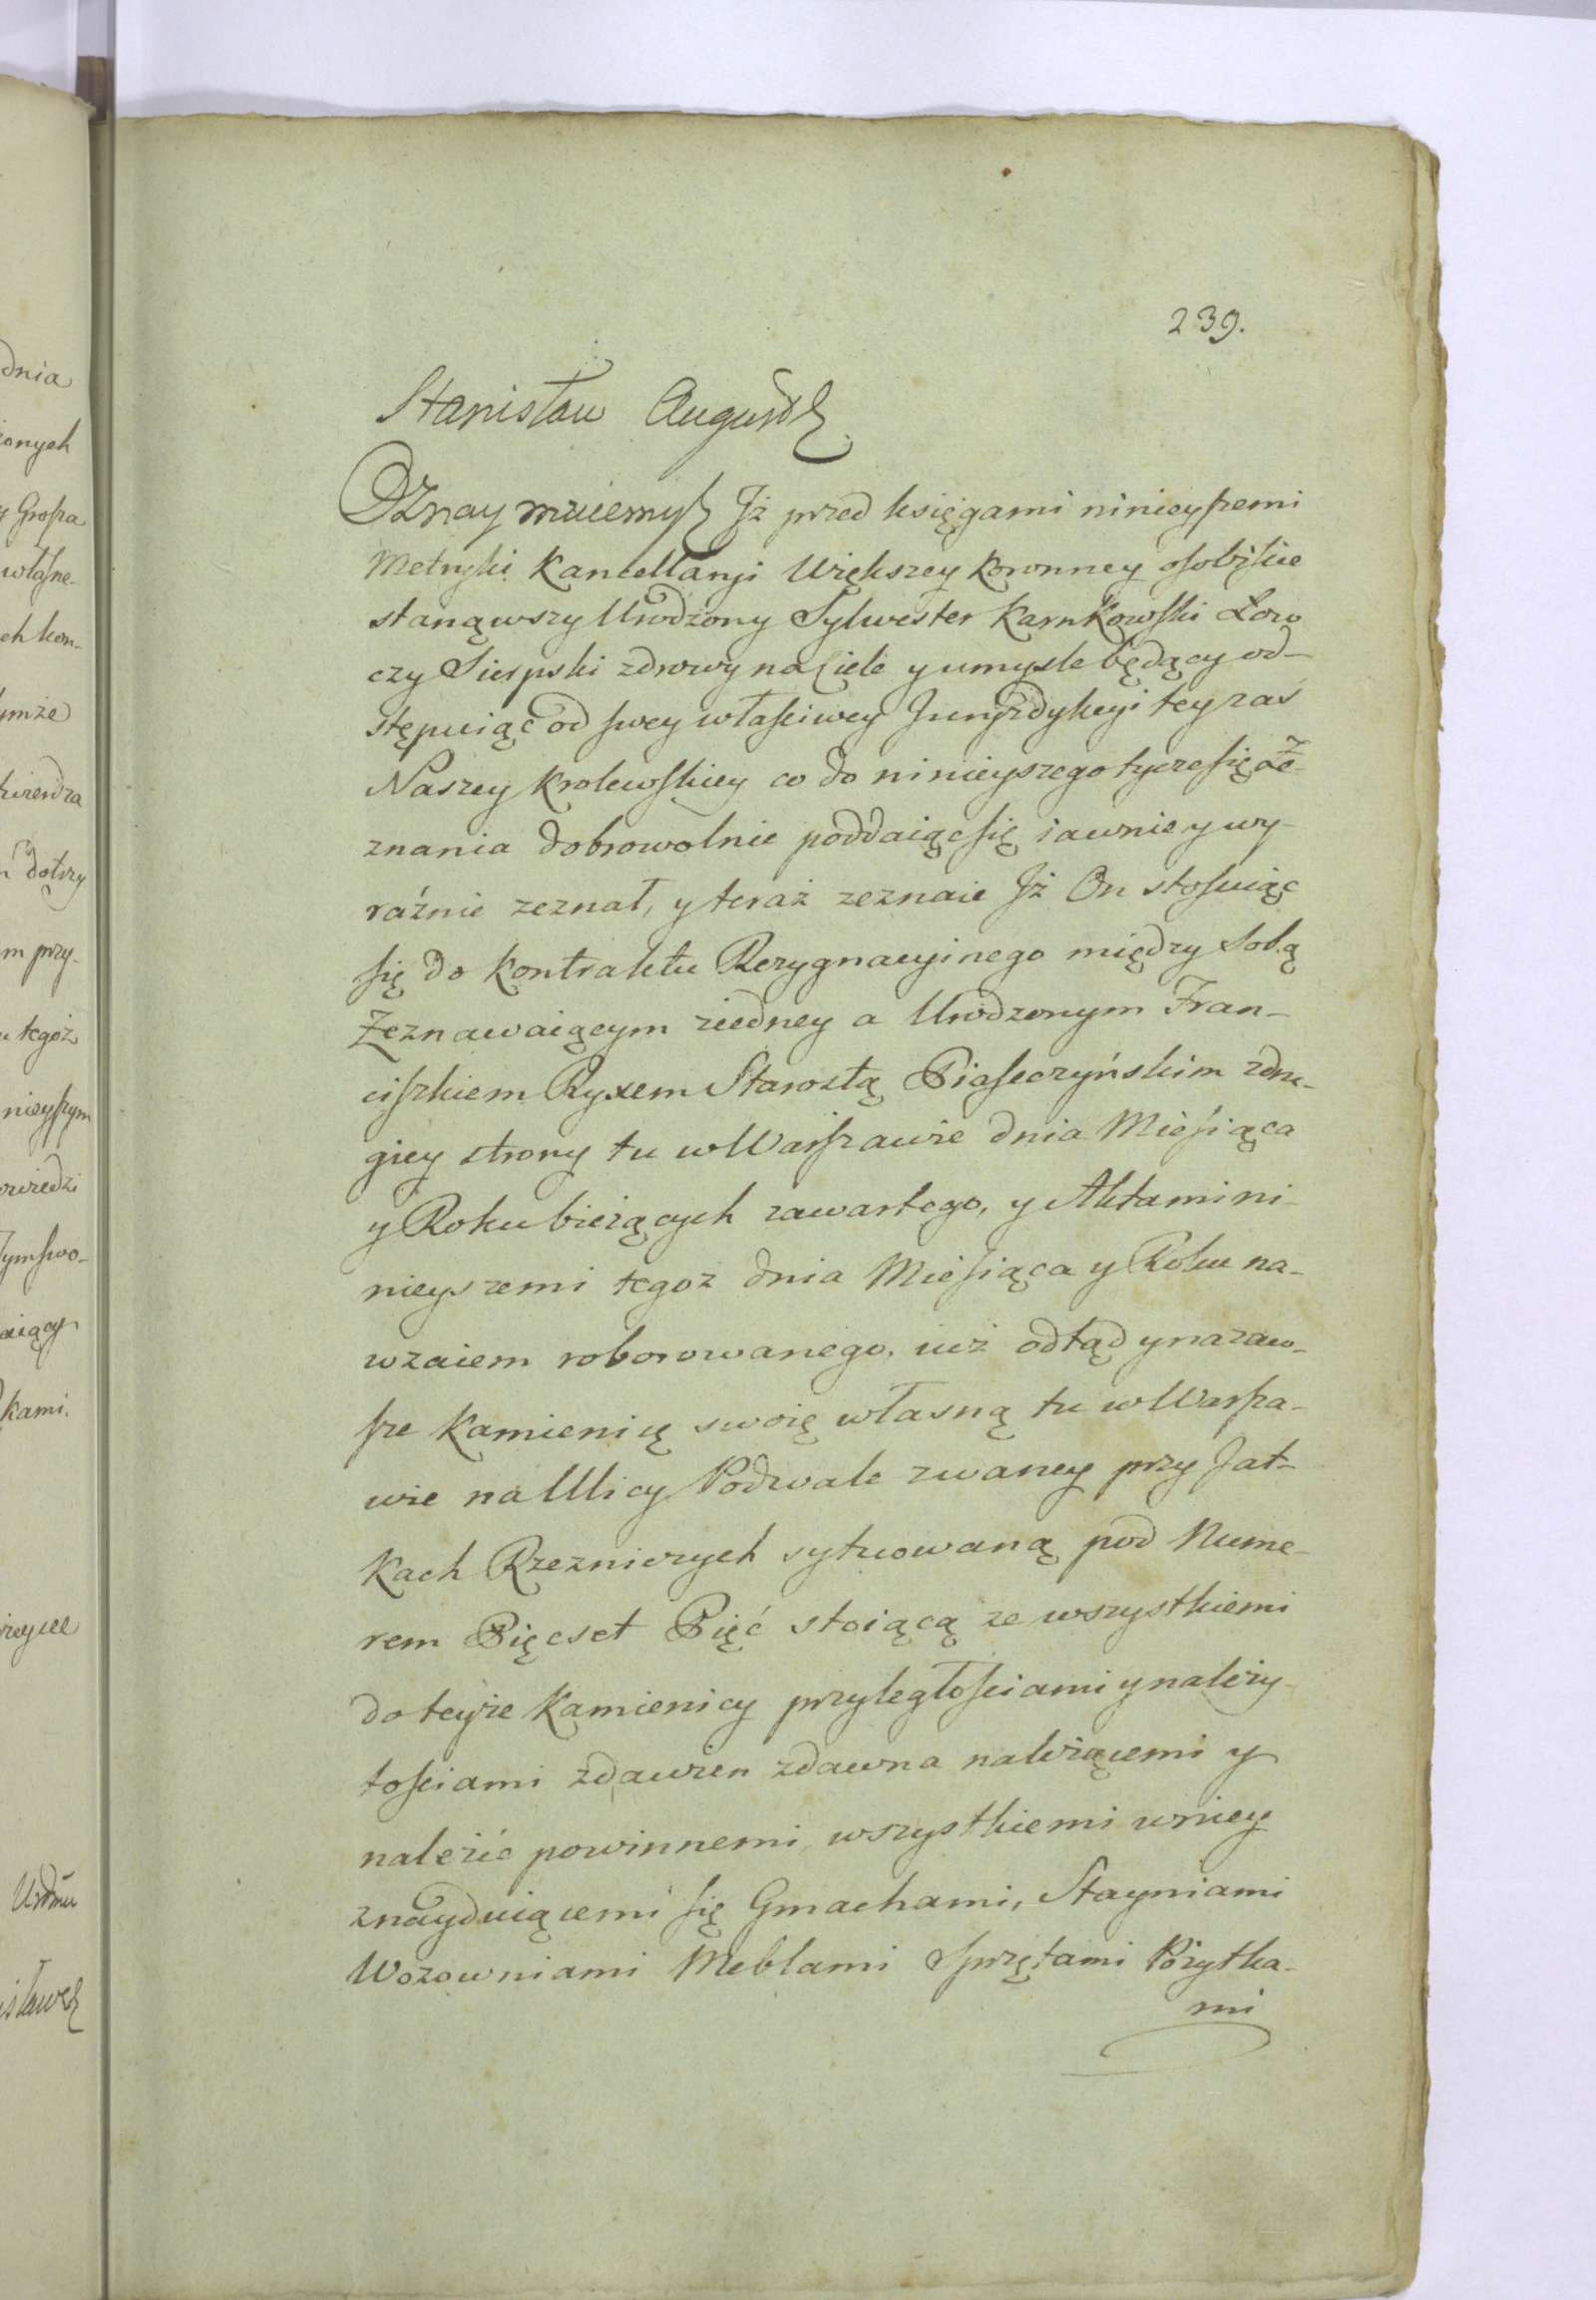 239.
Stanisław August
Oznaymuiemy Jż przed księgami ninieyszemi
Metryki Kancellaryi Większey Koronney osobiście
stanąwszy Urodzony Sylwester Karnkowski Łow
czy Sierpski zdrowy na ciele y umysle będący od-
stępuiąc od swey własciwey Juryzdykcyi tey zas
Naszey Krolewskiey co do ninieyszego tycze się Ze-
znania dobrowolnie poddaiąc się iawnie y wy-
raźnie zeznał, y teraz zeznaie Jż On stosuiąc
się do kontraktu Rezygnacyinego między Sobą
Zeznawaiącym ziedney a Urodzonym Fran-
ciszkiem Ryxem Starostą Piaseczyńskim zdru-
giey strony tu w Warszawie dnia Miesiąca
y Roku bieżących zawartego, y Aktami ni-
nieyszemi tegoż dnia Miesiąca y Roku na-
wzaiem roborowanego, iuż odtąd y nazaw-
sze Kamienicę swoię własną tu w Warsza-
wie na Ulicy Podwale zwaney przy Jat-
kach Rzezniczych sytuowaną pod Nume-
rem Pięcset Pięć stoiącą ze wszystkiemi
do teyże Kamienicy przyległosciami y należy-
tosciami zdawien zdawna należącemi y
należeć powinnemi wszystkiemi w niey
znayduiącemi się Gmachami, Stayniami
Wozowniami Meblami Sprzętami Pożytka-
mi
dnia
żonych
y Grosza
własne-
ch kon-
ymże
m przy-
u tegoż
nieyszym
Tym swo-
aiący
kami.